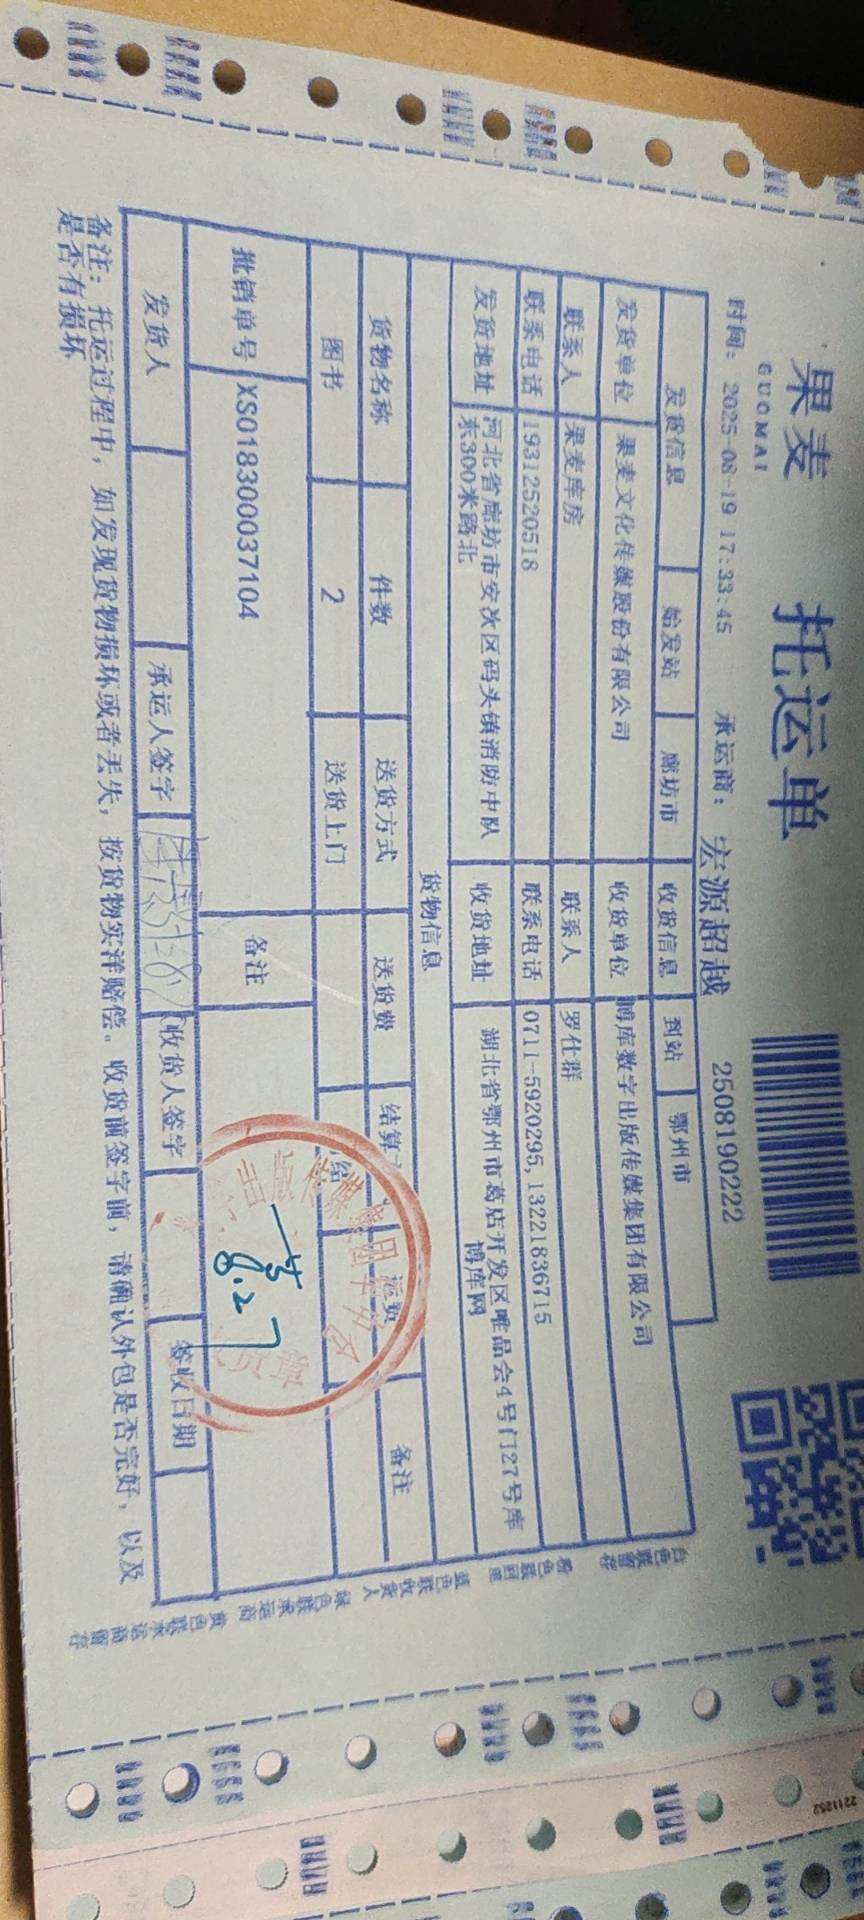 果麦
GUOMAI
托运单
时间: 2025-08-19 17:33:45 承运商: 宏源超越 2508190222
发货信息 始发站 廊坊市 收货信息 到站 鄂州市
发货单位 果麦文化传媒股份有限公司 收货单位 博库数字出版传媒集团有限公司
联系人 果麦库房 联系人 罗仕群
联系电话 19312520518 联系电话 0711-5920295,13221836715
发货地址 河北省廊坊市安次区码头镇消防中队 收货地址 湖北省鄂州市葛店开发区唯品会4号门27号库
东300米路北 博库网
货物信息
货物名称 件数 送货方式 送货费 结算 运费 备注
图书 2 送货上门
批销单号 XS018300037104 备注
8.27
发货人 承运人签字 收货人签字 签收日期
备注: 托运过程中, 如发现货物损坏或者丢失, 按货物实洋赔偿。收货前签字前, 请确认外包是否完好, 以及
是否有损坏
白色联留存 粉色联回单 蓝色联收货人 绿色联承运商 黄色联承运商留存
2211252